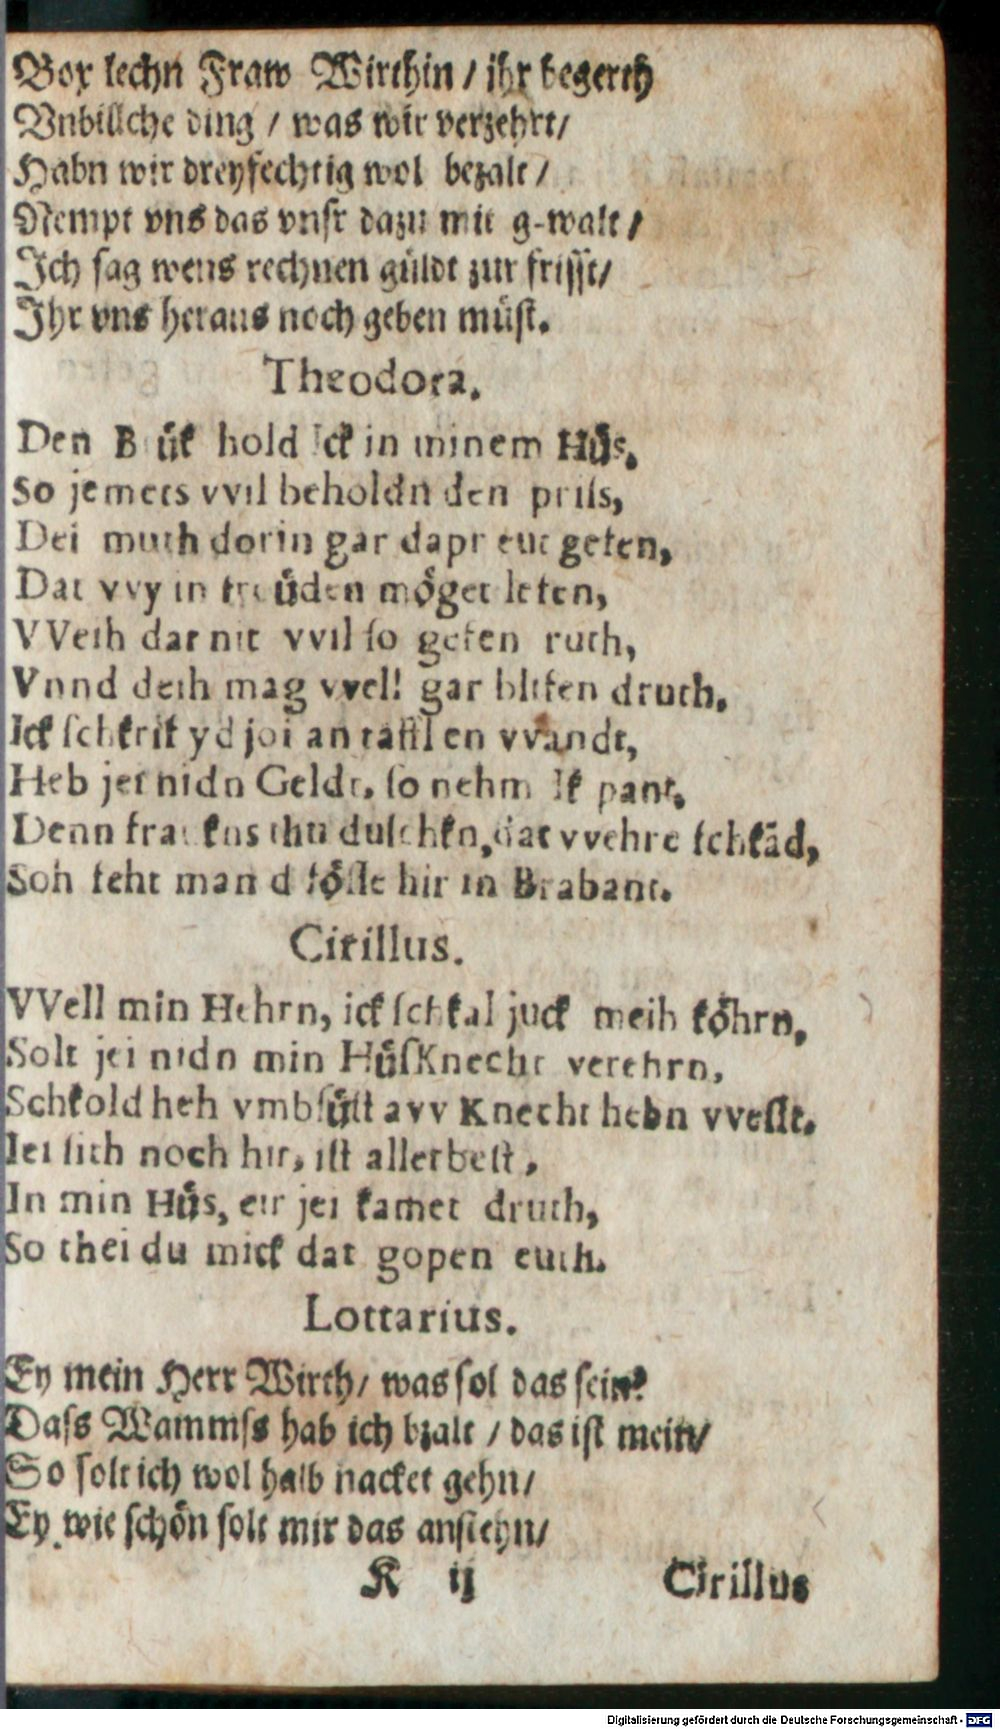 Box lechn Fraw Wirthin / ihr begerth
Vnbillche ding / was wir verzehrt/
Habn wir dreyfechtig wol bezalt /
Nempt vns das vnsr dazu mit g-walt /
Ich sag wens rechnen güldt zur frisst/
Ihr vns heraus noch geben müst.
Theodora.
Den hold Ick in minem Hůs,
So jemets vvil beholdn den priſs,
Dei muth dorin gar dapr eut geken,
Dat vvy in möget leken,
VVeih dat nit vvil ſo geken ruth,
Vnnd deih mag vvel! gar bliken druth.
Ick ſchkrik yd joi an tafflen vvandt,
Heb jei nidn Geldt, ſo nehm Ik pant,
Denn thu duſchkn, dat vvehre ſchkåd,
Soh ſeht man d hir in Brabant.
Cirillus.
VVell min Hehrn, ick ſchkal juck meih kőhrn,
Solt jei nidn min HůſKnecht verehrn,
Schkold heh vmbſůſt avv Knecht hebn vveſſt.
Iei ſith noch hir, iſt allerbeſt,
In min Hůs, eir jei kamet druth,
So thei du mick dat gopen euth.
Lottarius.
Ey mein Herr Wirth/ was sol das sein?
Dass Wammss hab ich bzalt / das ist mein/
So solt ich wol halb nacket gehn/
Ey wie schön solt mir das anstehn/
K ij Cirillus
Digitalisierung gefördert durch die Deutsche Forschungsgemeinschaft - DFG